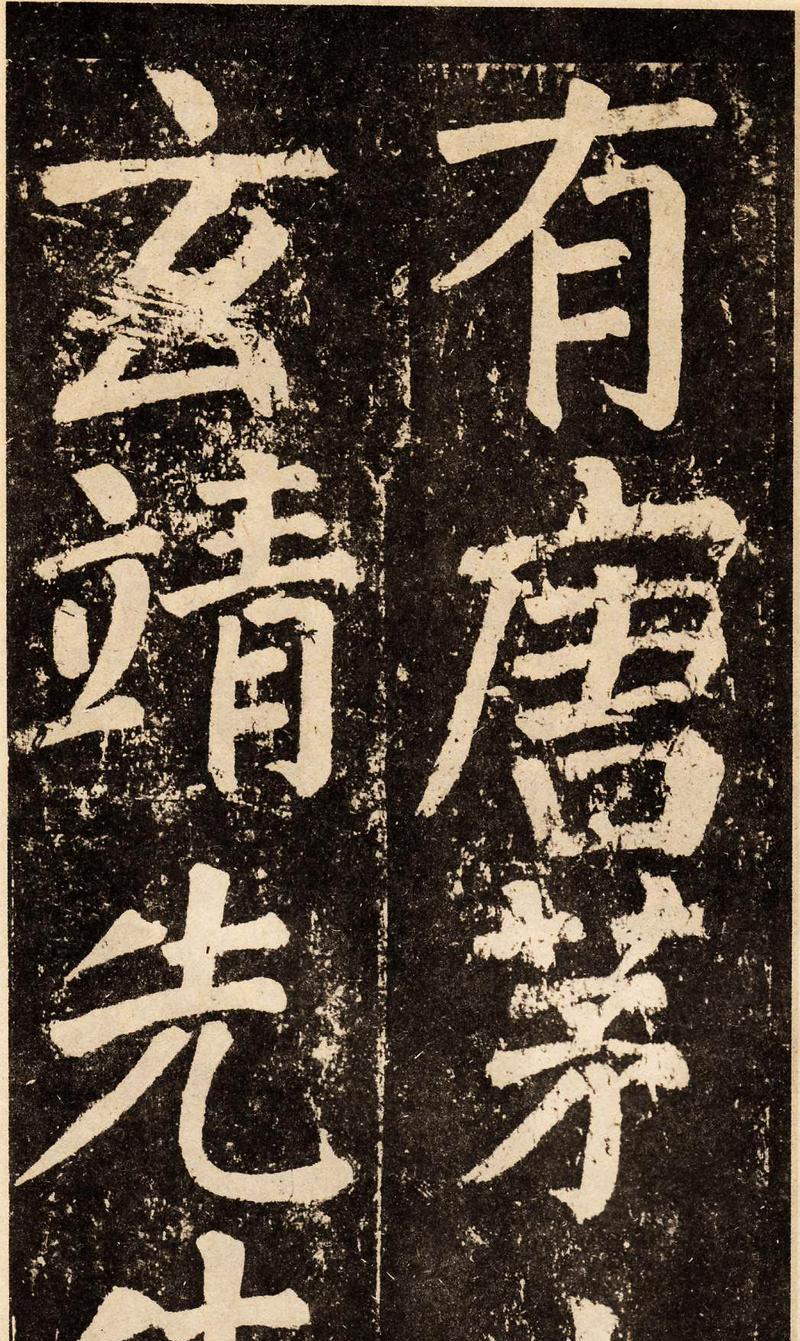 有唐茅
玄靖先